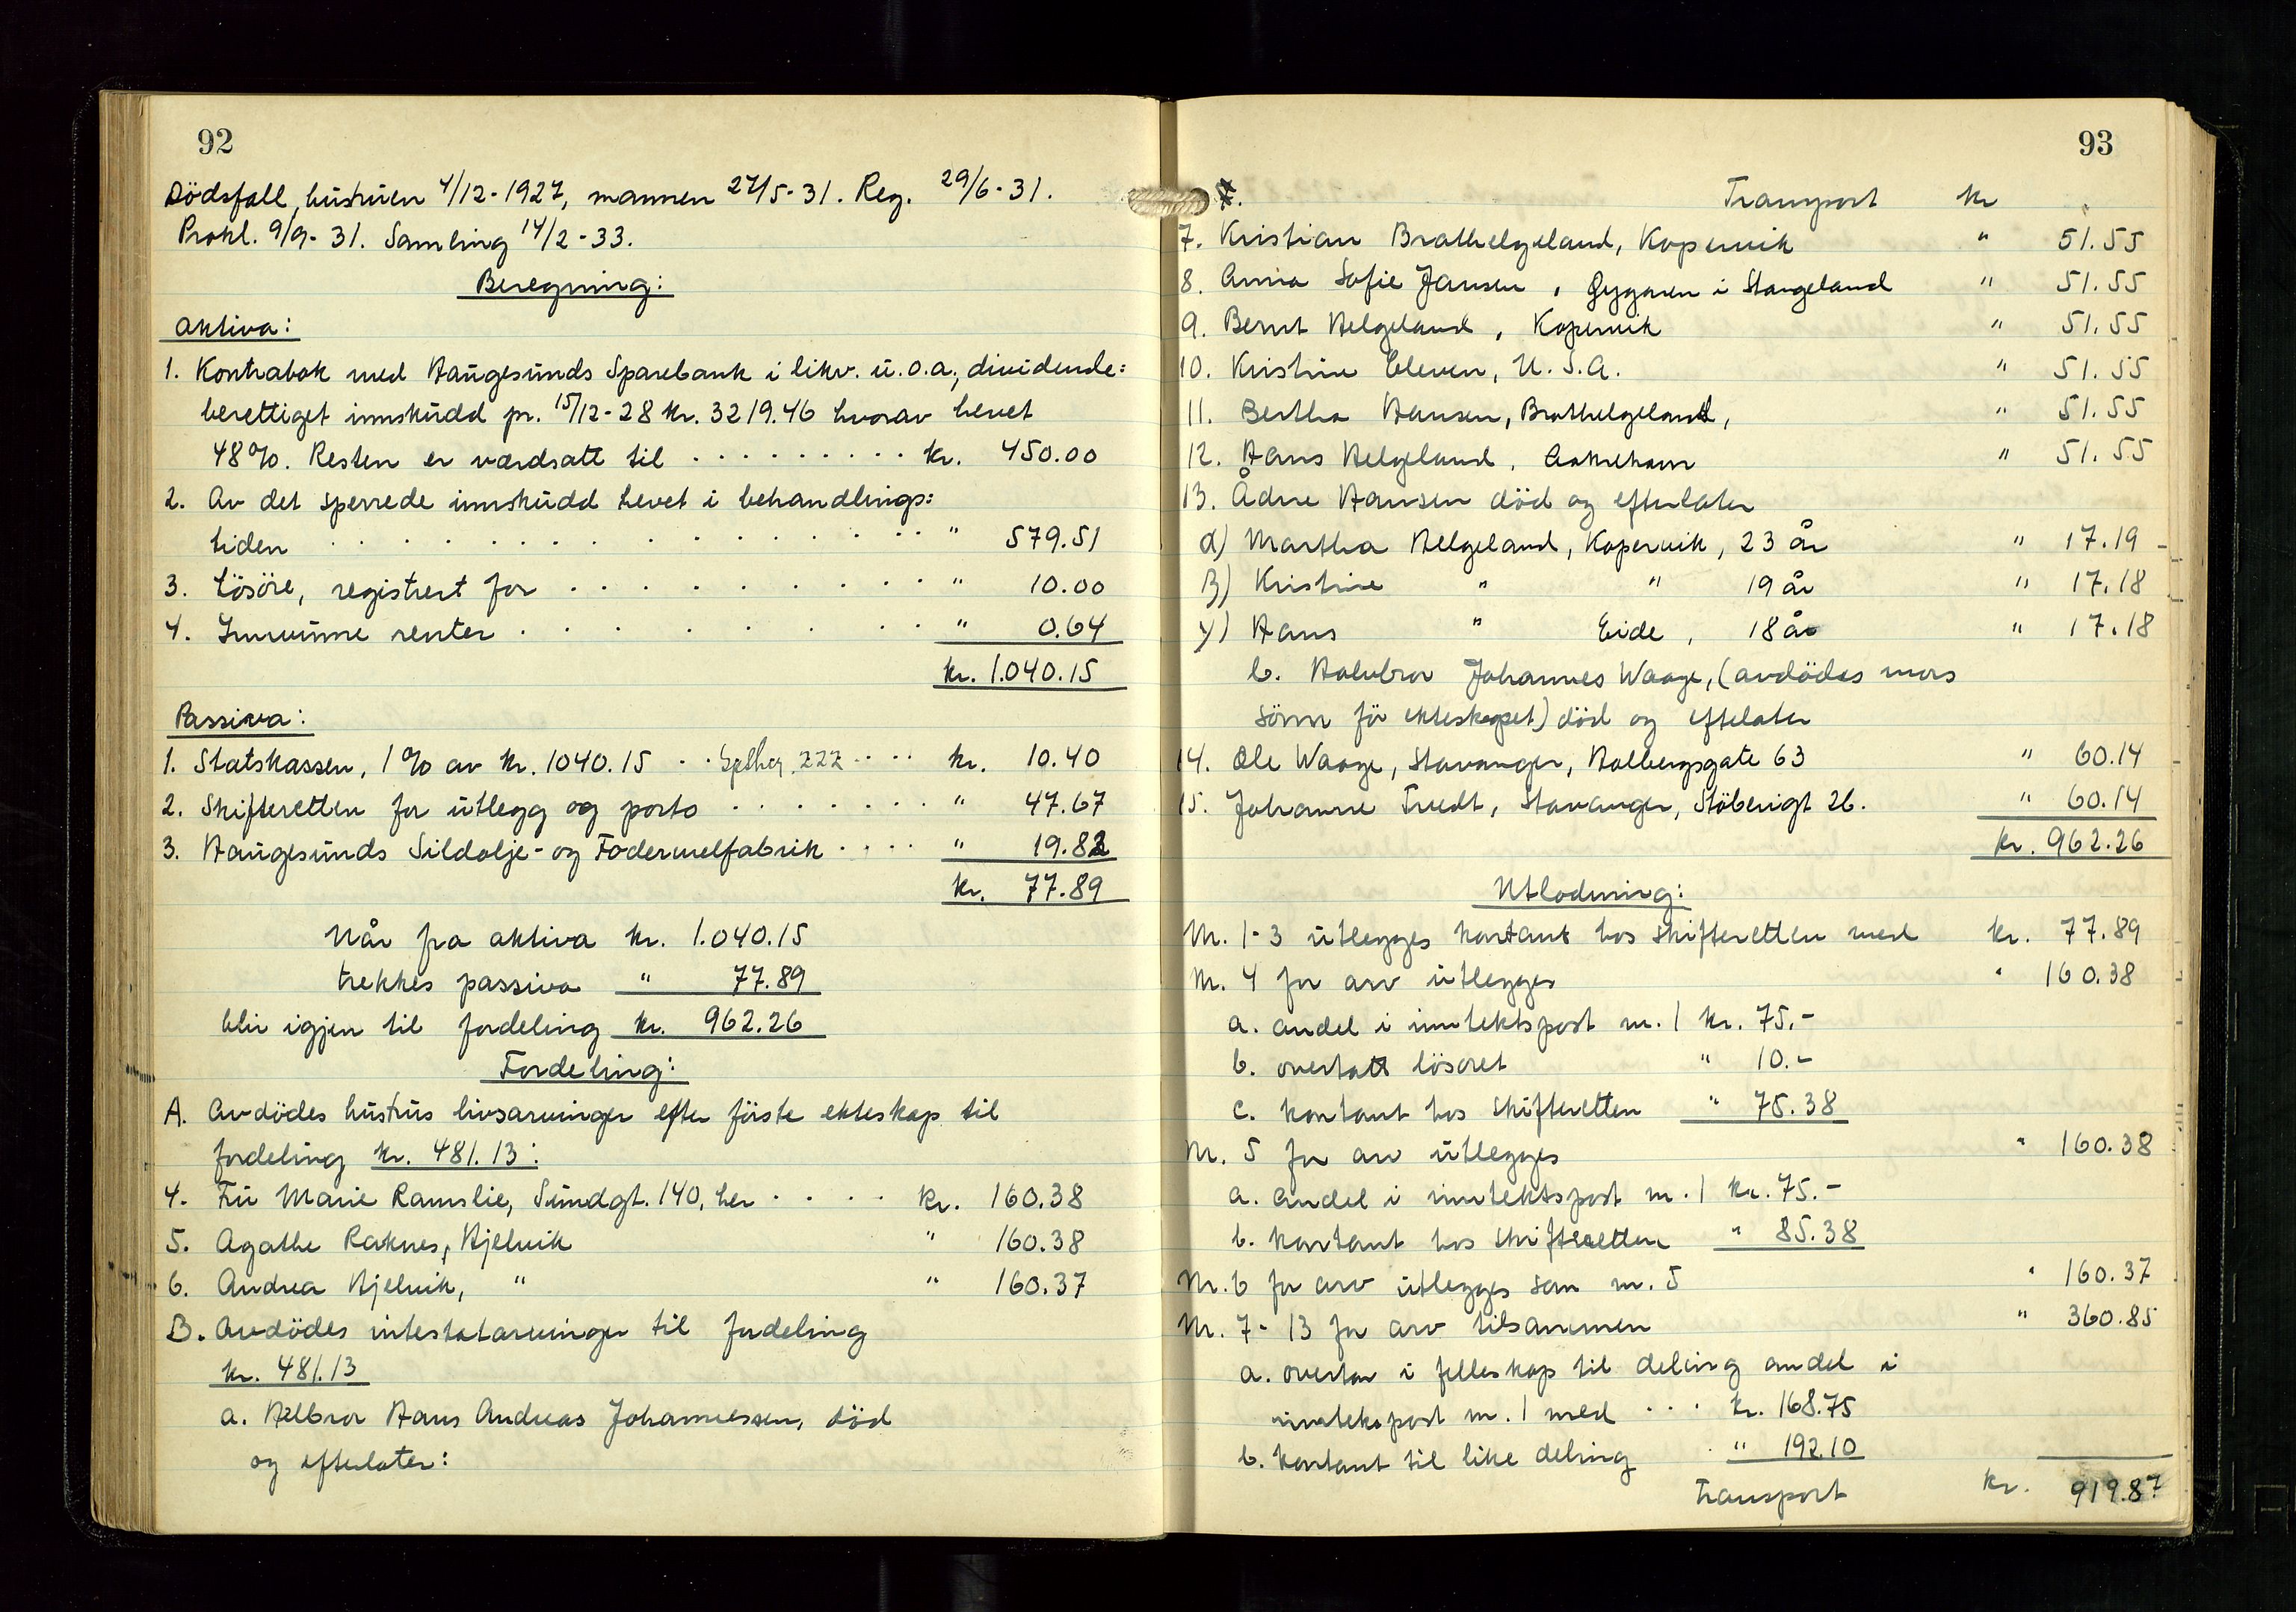 92
Dödsfall, hustruen 4/12-1927, mannen 27/5-31. Reg. 29/6-31.
Prokl. 9/9-31. Samling 14/2-33.
Beregning:
Aktiva:
1. Kontrabok med Haugesunds Sparebank i likv. u.o.a., dividende=
berettiget innskudd pr. 15/12-28 kr. 3219.46 hvorav hevet
48%. Resten er værdsatt til . . . . . . . . . kr. 450.00
2. Av det sperrede innskudd hevet i behandlings=
tiden . . . . . . . . . . . . . . " 579.51
3. Lösöre, registrert for . . . . . . . . . " 10.00
4. Innvunne renter . . . . . . . . " 0.64
kr. 1.040.15
Passiva:
1. Statskassen, 1% av kr. 1040.15 . . 222 . . . . kr. 10.40
2. Skifteretten for utlegg og porto . . . . . . . . " 47.67
3. Haugesunds Sildolje- og Fodermelfabrik . . . . " 19.82
kr. 77.89
Når fra aktiva kr. 1.040.15
trekkes passiva " 77.89
blir igjen til fordeling kr. 962.26
Fordeling:
A. Avdödes hustrus livsarvinger efter förste ekteskap til
fordeling kr. 481.13:
4. Fru Marie Ramslie, Sundgt. 140, her . . . . kr. 160.38
5. Agathe Raknes, Hjelvik " 160.38
6. Andrea Hjelvik, " " 160.37
B. Avdödes intestatarvinger til fordeling
kr. 481.13
a. Helbror Hans Andreas Johannessen, död
og efterlater:
93
Transport kr
7. Kristian Brathelgeland, Kopervik " 51.55
8. Anna Sofie Jansen, Gygaren i Stangeland " 51.55
9. Bernt Helgeland, Kopervik " 51.55
10. Kristine Eleven, U.S.A. " 51.55
11. Bertha Hansen, Brathelgeland, " 51.55
12. Hans Helgeland, Aakrehamn " 51.55
13. Ådne Hansen död og efterlater
α) Martha Helgeland, Kopervik, 23 år " 17.19
β) Kristine " " 19 år " 17.18
γ) Hans " Eide, 18 år " 17.18
b. Halvbror Johannes Waage, (avdödes mors
sönn för ekteskapet) död og efterlater
14. Ole Waage, Stavanger, Holbergsgate 63 " 60.14
15. Johanne Tvedt, Stavanger, Stöberigt 26. " 60.14
kr. 962.26
Utlodning:
Nr. 1-3 utlegges kontant hos skifteretten med kr. 77.89
Nr. 4 for arv utlegges " 160.38
a. andel i inntektspost nr. 1 kr. 75.-
b. overtatt lösöret " 10.-
c. kontant hos skifteretten " 75.38
Nr. 5 for arv utlegges " 160.38
a. andel i inntektspost nr. 1 kr. 75.-
b. kontant hos skifteretten " 85.38
Nr. 6 for arv utlegges som nr. 5 " 160.37
Nr. 7-13 for arv tilsammen " 360.85
a. overtar i felleskap til deling andel i
inntekspost nr. 1 med . . . kr. 168.75
b. kontant til like deling . " 192.10
Transport kr. 919.87